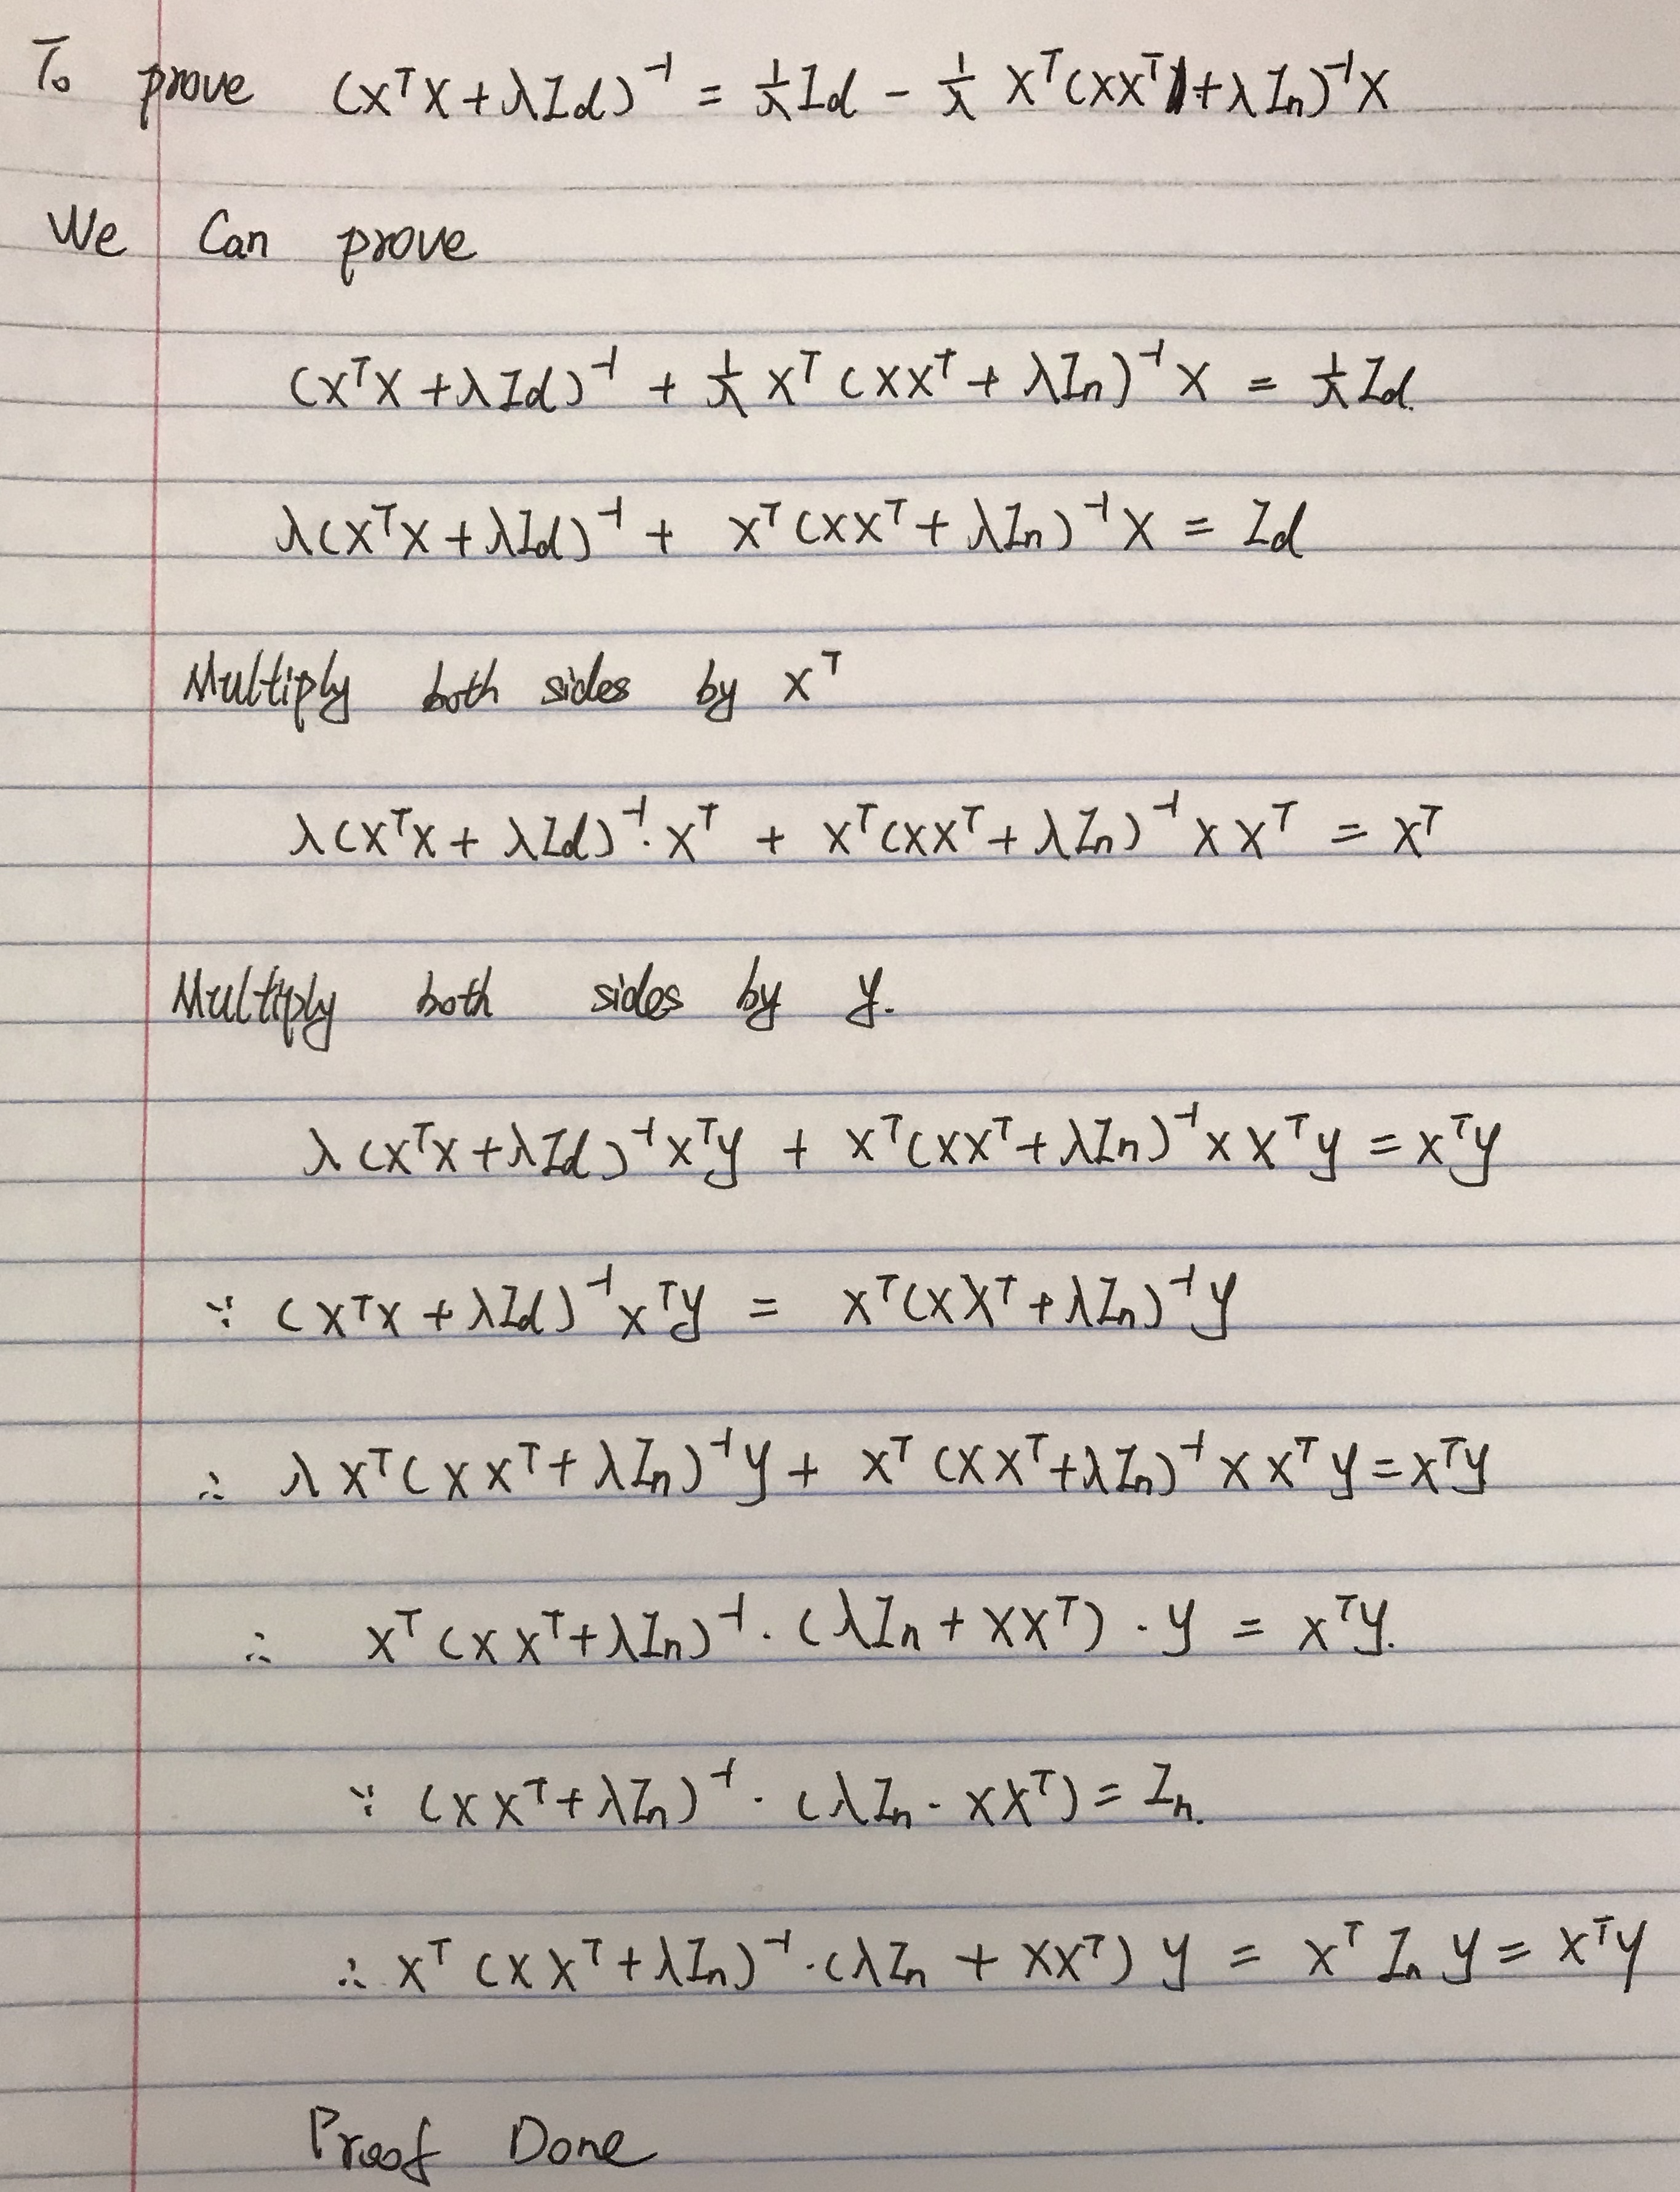 To prove (XᵀX + λId)⁻¹ = 1/λ Id - 1/λ Xᵀ(XXᵀ + λIn)⁻¹X
We Can prove
(XᵀX + λId)⁻¹ + 1/λ Xᵀ(XXᵀ + λIn)⁻¹X = 1/λ Id.
λ(XᵀX + λId)⁻¹ + Xᵀ(XXᵀ + λIn)⁻¹X = Id
Multiply both sides by Xᵀ
λ(XᵀX + λId)⁻¹·Xᵀ + Xᵀ(XXᵀ + λIn)⁻¹XXᵀ = Xᵀ
Multiply both sides by y.
λ(XᵀX + λId)⁻¹Xᵀy + Xᵀ(XXᵀ + λIn)⁻¹XXᵀy = Xᵀy
∵ (XᵀX + λId)⁻¹Xᵀy = Xᵀ(XXᵀ + λIn)⁻¹y
∴ λXᵀ(XXᵀ + λIn)⁻¹y + Xᵀ(XXᵀ + λIn)⁻¹XXᵀy = Xᵀy
∴ Xᵀ(XXᵀ + λIn)⁻¹·(λIn + XXᵀ)·y = Xᵀy.
∵ (XXᵀ + λIn)⁻¹·(λIn - XXᵀ) = In.
∴ Xᵀ(XXᵀ + λIn)⁻¹·(λIn + XXᵀ)y = XᵀIn y = Xᵀy
Proof Done